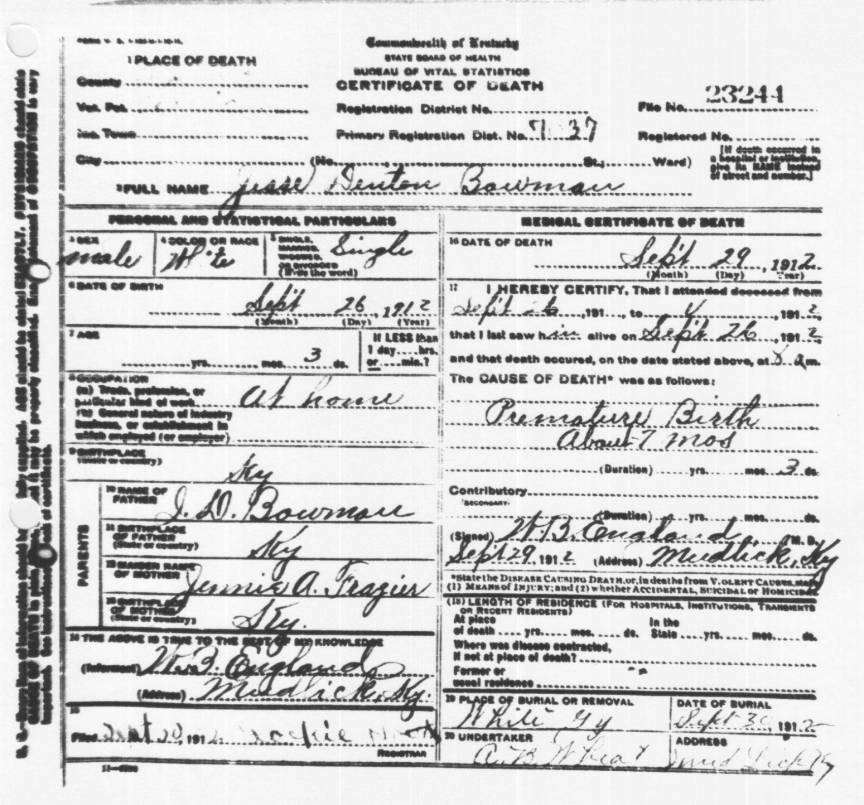 Commonwealth of Kentucky
STATE BOARD OF HEALTH
BUREAU OF VITAL STATISTICS
CERTIFICATE OF DEATH
1 PLACE OF DEATH
County
Vot. Pct.
Inc. Town
City (No. St., Ward)
Registration District No.
Primary Registration Dist. No. 7037
File No. 23244
Registered No.
[If death occurred in
a hospital or institution,
give its NAME instead
of street and number.]
2 FULL NAME Jesse Denton Bowman
PERSONAL AND STATISTICAL PARTICULARS
3 SEX male
4 COLOR OR RACE White
5 SINGLE, MARRIED, WIDOWED, OR DIVORCED (Write the word) Single
6 DATE OF BIRTH
Sept 26, 1912
(Month) (Day) (Year)
7 AGE
yrs. mos. 3 ds.
If LESS than
1 day....hrs.
or....min.?
8 OCCUPATION
(a) Trade, profession, or
particular kind of work At home
(b) General nature of industry
business, or establishment in
which employed (or employer)
9 BIRTHPLACE
(State or country)
Ky
PARENTS
10 NAME OF
FATHER J. D. Bowman
11 BIRTHPLACE
OF FATHER
(State or country) Ky
12 MAIDEN NAME
OF MOTHER Jennie A. Frazier
13 BIRTHPLACE
OF MOTHER
(State or country) Ky.
14 THE ABOVE IS TRUE TO THE BEST OF MY KNOWLEDGE
(Informant) W. B. England
(Address) Mudlick, Ky.
15
Filed 191
REGISTRAR
MEDICAL CERTIFICATE OF DEATH
16 DATE OF DEATH
Sept 29, 1912
(Month) (Day) (Year)
17 I HEREBY CERTIFY, That I attended deceased from
Sept 26, 191 , to , 1912
that I last saw him alive on Sept 26, 1912
and that death occured, on the date stated above, at 8 am.
The CAUSE OF DEATH* was as follows:
Premature Birth
About 7 mos
(Duration) yrs. mos. 3 ds.
Contributory
SECONDARY
(Duration) yrs. mos. ds.
(Signed) W. B. England, M. D.
Sept 29, 1912 (Address) Mudlick, Ky
*State the DISEASE CAUSING DEATH, or, in deaths from VIOLENT CAUSES, state
(1) MEANS OF INJURY; and (2) whether ACCIDENTAL, SUICIDAL or HOMICIDAL
(18) LENGTH OF RESIDENCE (FOR HOSPITALS, INSTITUTIONS, TRANSIENTS
OR RECENT RESIDENTS)
At place In the
of death yrs. mos. ds. State yrs. mos. ds.
Where was disease contracted,
if not at place of death?
Former or
usual residence
19 PLACE OF BURIAL OR REMOVAL
White Gy
DATE OF BURIAL
Sept 30, 1912
20 UNDERTAKER
A. B. Wheat
ADDRESS
Mud Lick Ky